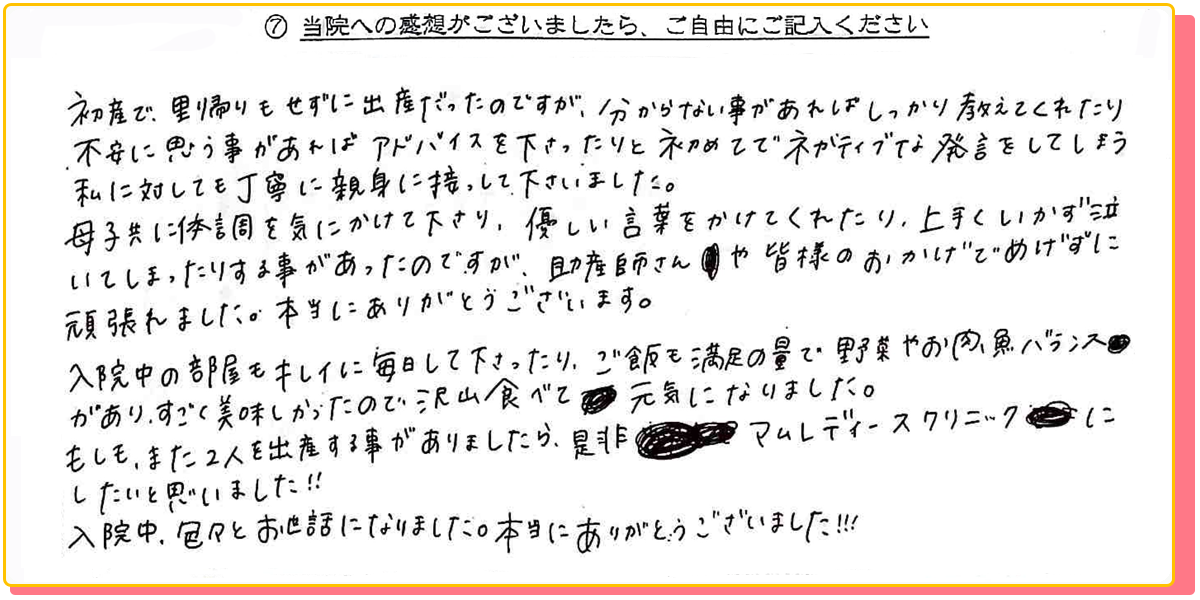 ⑦ 当院への感想がございましたら、ご自由にご記入ください
初産で、里帰りもせずに出産だったのですが、分からない事があればしっかり教えてくれたり
不安に思う事があればアドバイスを下さったりと初めてでネガティブな発言をしてしまう
私に対しても丁寧に親身に接っして下さいました。
母子共に体調を気にかけて下さり、優しい言葉をかけてくれたり、上手くいかず泣
いてしまったりする事があったのですが、助産師さんや皆様のおかげでめげずに
頑張れました。本当にありがとうございます。
入院中の部屋もキレイに毎日して下さったり、ご飯も満足の量で野菜やお肉、魚バランス
があり、すごく美味しかったので沢山食べて元気になりました。
もしも、また2人を出産する事がありましたら、是非マムレディースクリニックに
したいと思いました!!
入院中、色々とお世話になりました。本当にありがとうございました!!!